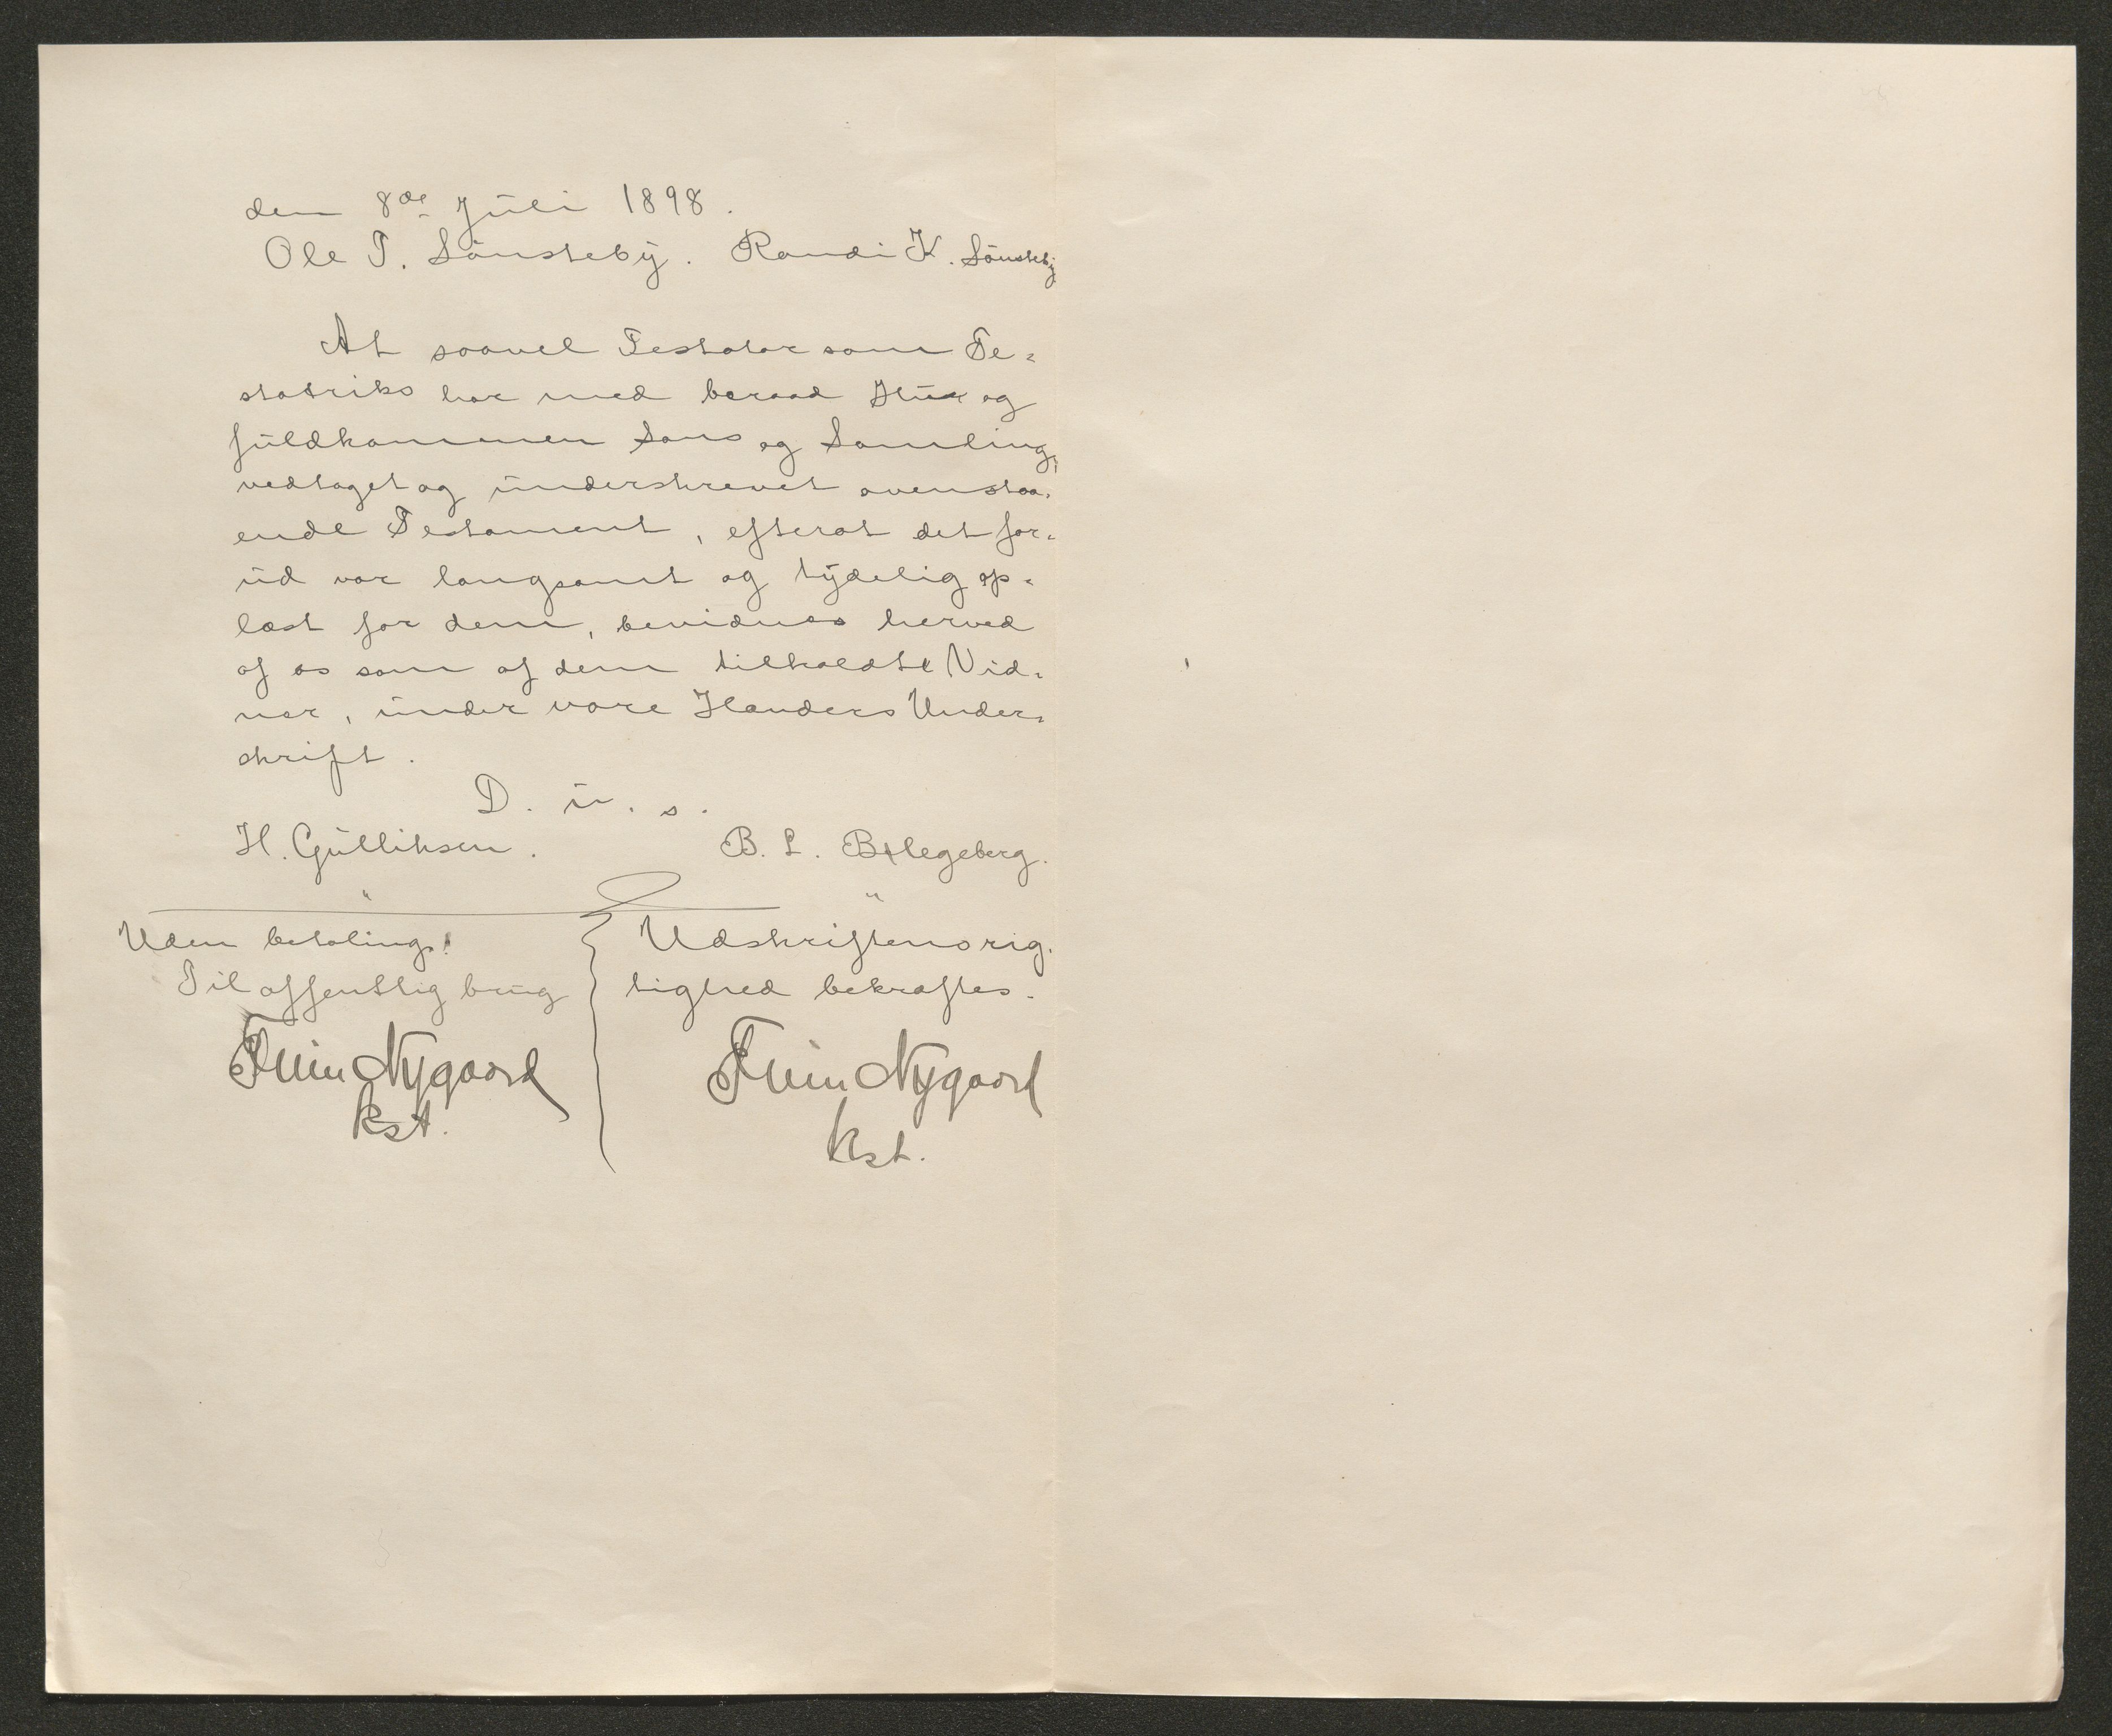 den 8de Juli 1898.
Ole T. Sönsteby. Randi K. Sönsteby
At saavel Testator som Te-
statriks har med beraad Hu og
fuldkommen Sans og Samling,
vedtaget og underskrevet ovenstaa-
ende Testament, efterat det for-
ud var langsomt og tydelig op-
læst for dem, bevidnes herved
af os som af dem tilkaldte Vid-
ner, under vore Hænders Under-
skrift.
D. u. s.
H. Gulliksen. B. L. Bylegeberg.
Uden betaling!
Til offentlig brug
Nygaard
kst.
Udskriftens rig-
tighed bekræftes.
Nygaard
kst.